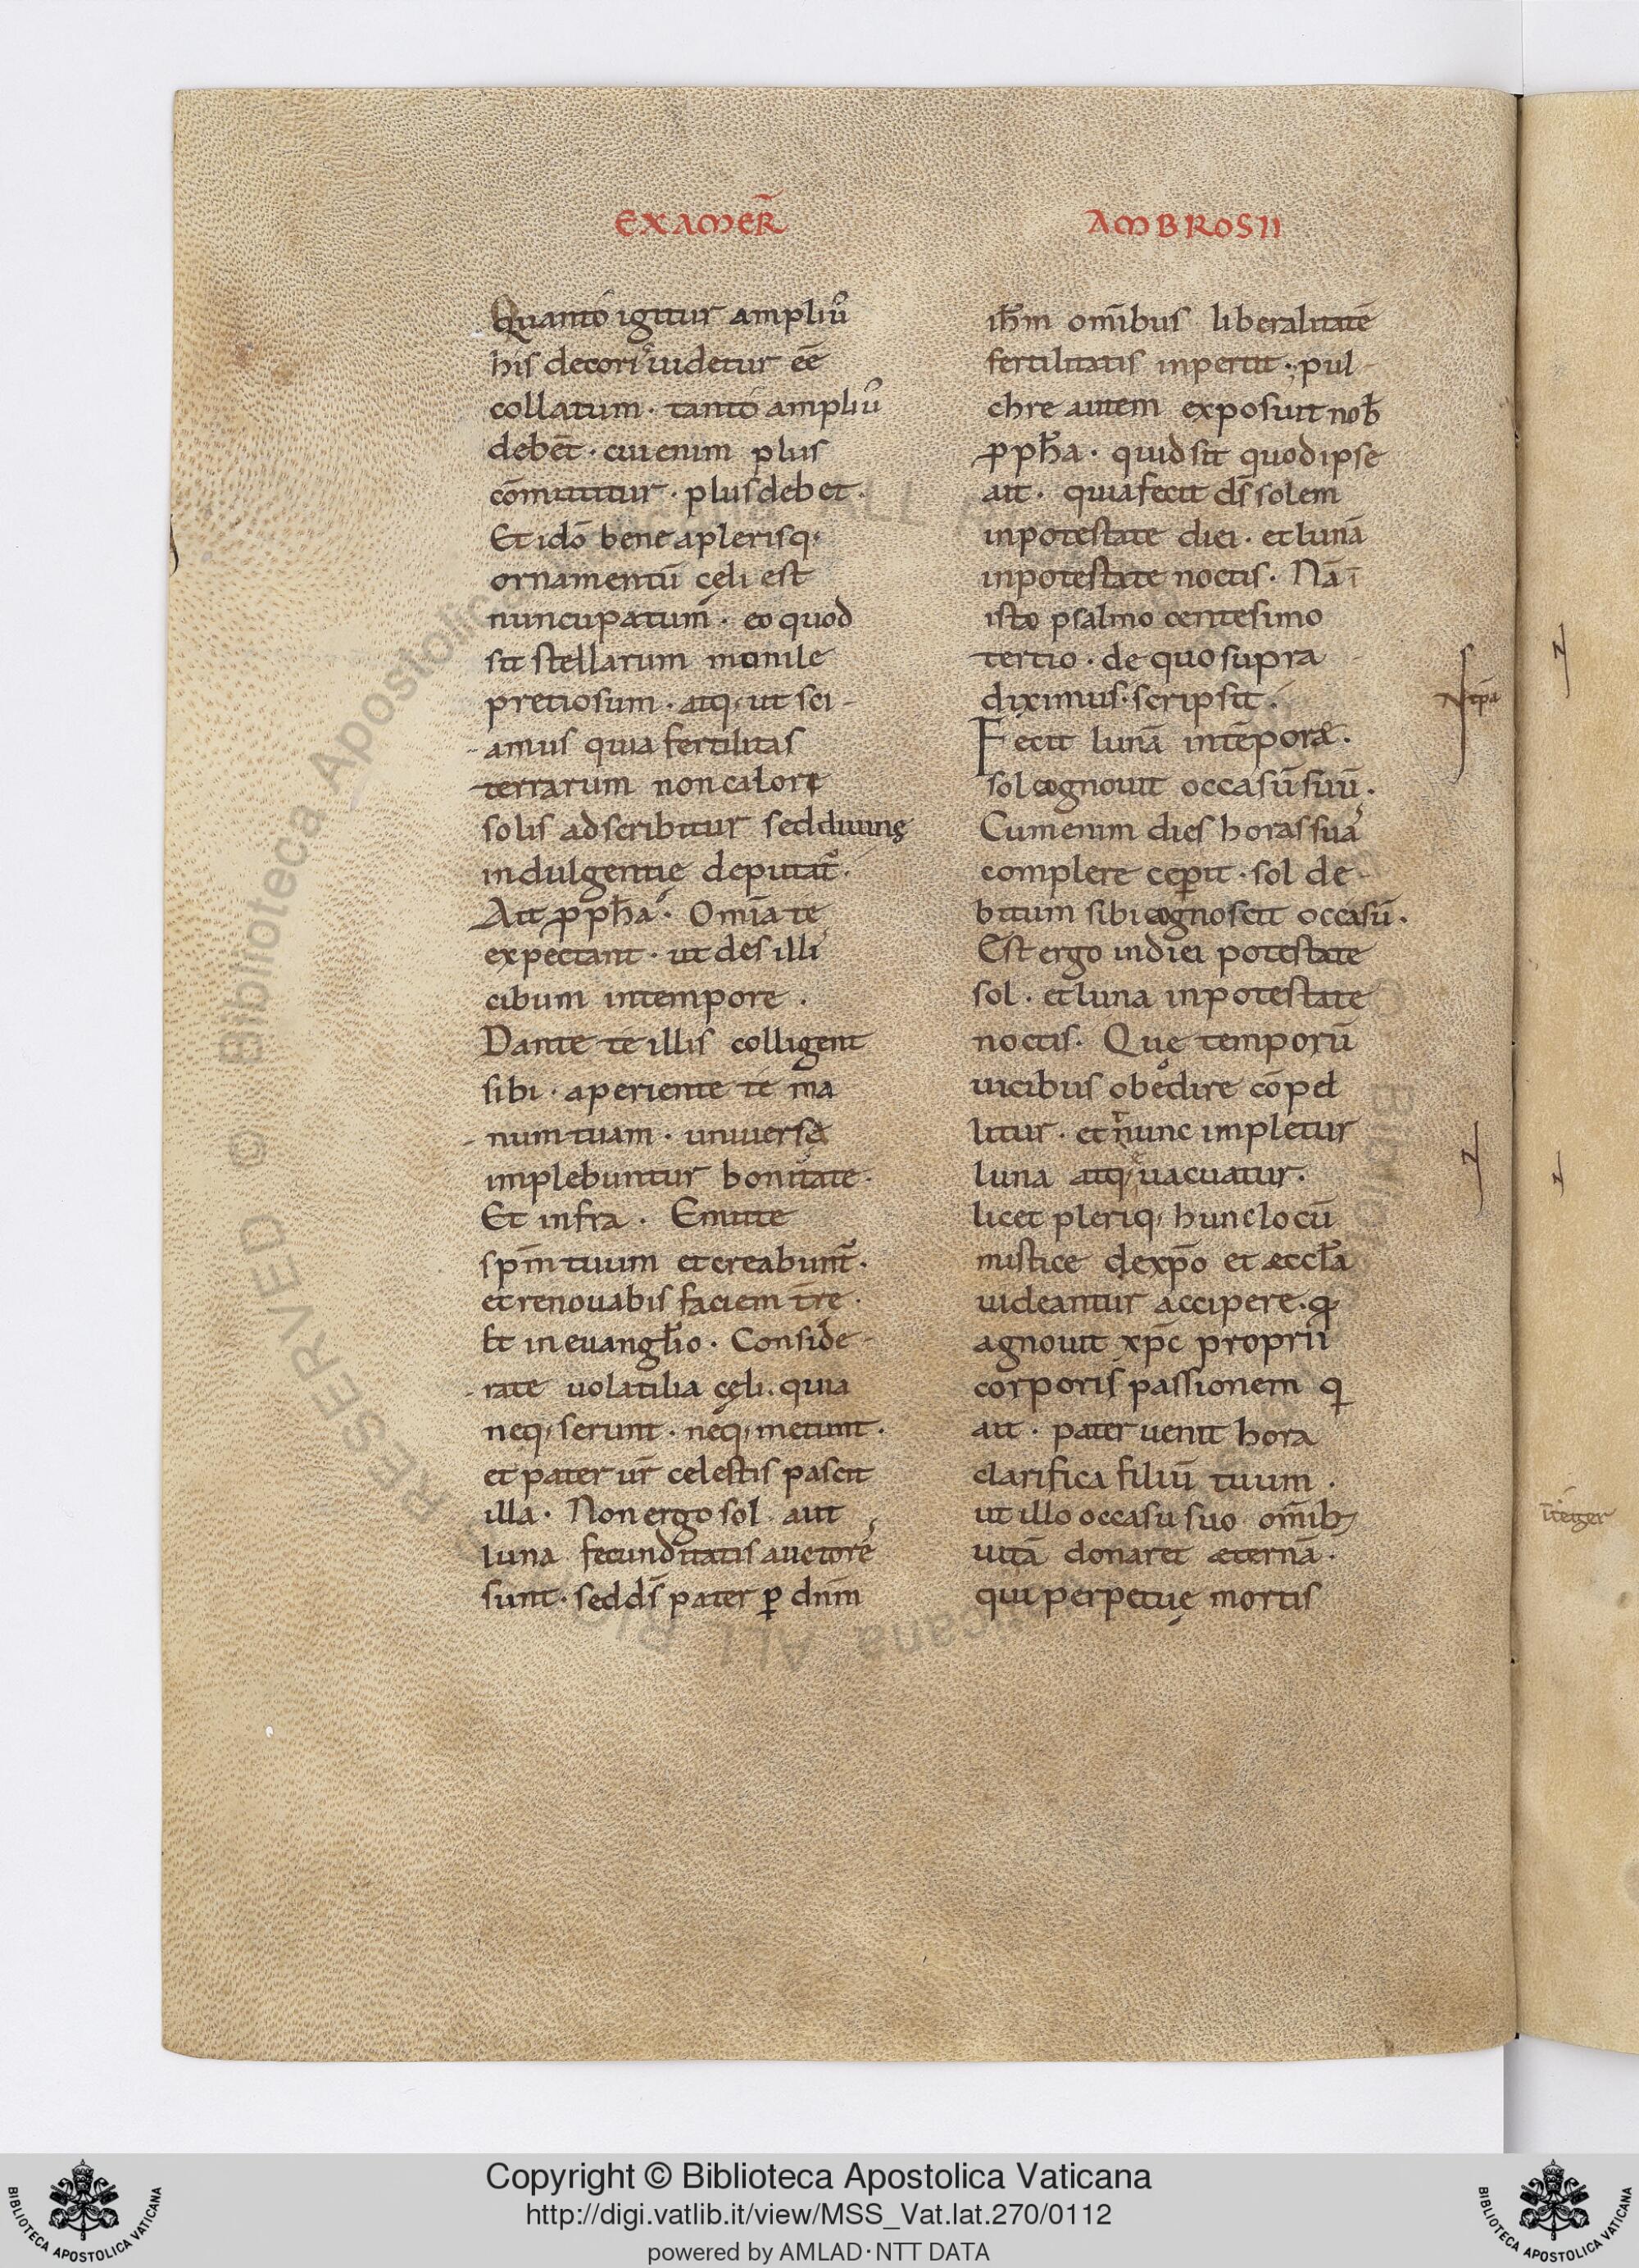 EXAMER̄
Quanto igitur ampliu᷒
his decori uidetur eē
collatum · tanto ampliu᷒
debēt · cui enim plus
cōmittitur · plus debet ·
Et idō bene a plerisq;
ornamentū cęli est
nuncupatum · eo quod
sit stellarum monile
pretiosum · atq; ut sci-
-amus quia fertilitas
terrarum non calore
solis adscribitur sed diuinę
indulgentię deputat̄ ·
Ait ꝓph̄a · Om̄ia te
expectant · ut des illi
cibum in tempore ·
Dante te illis colligent
sibi · aperiente te ma
-num tuam · uniuersa
implebuntur bonitate ·
Et infra · Emitte
sp̄m tuum et creabunt̄ ·
et renouabis faciem t̄re ·
Et in euangl̄io · Conside-
-rate uolatilia cęli · quia
neq; serunt · neq; metunt ·
et pater ur̄ celestis pascit
illa · Non ergo sol aut
luna fecunditatis auctore᷒
sunt · sed ds̄ pater ꝑ dn̄m
AMBROSII
ih̄m om̄ibus liberalitatē
fertilitatis inpertit · pul-
chre autem exposuit nob̄
ꝓph̄a · quid sit quod ipse
ait · quia fecit ds̄ solem
in potestate diei · et lunā
in potestate noctis · Nā ī
isto psalmo centesimo
tertio · de quo supra
diximus · scripsit ·
Fecit lunā in tēpora ·
sol cognouit occasū suū ·
Cum enim dies horas sua᷒
complere ceperit · sol de-
bitum sibi cognoscit occasū ·
Est ergo in diei potestate
sol · et luna in potestate
noctis · Quę temporū
uicibus obędire cōpel
litur · et nunc impletur
luna atq; uacuatur ·
licet pleriq; hunc locū
mistice de xp̄o et æccl̄a
uideantur accipere · qđ
agnouit xp̄c proprii
corporis passionem q̄
ait · pater uenit hora
clarifica filiū tuum ·
ut illo occasu suo om̄ib;
uitā donaret æternā ·
qui perpetuę mortis
īteger
© Biblioteca Apostolica Vaticana ALL RIGHTS RESERVED
Copyright © Biblioteca Apostolica Vaticana
http://digi.vatlib.it/view/MSS_Vat.lat.270/0112
powered by AMLAD·NTT DATA
BIBLIOTECA APOSTOLICA VATICANA
BIBLIOTECA APOSTOLICA VATICANA